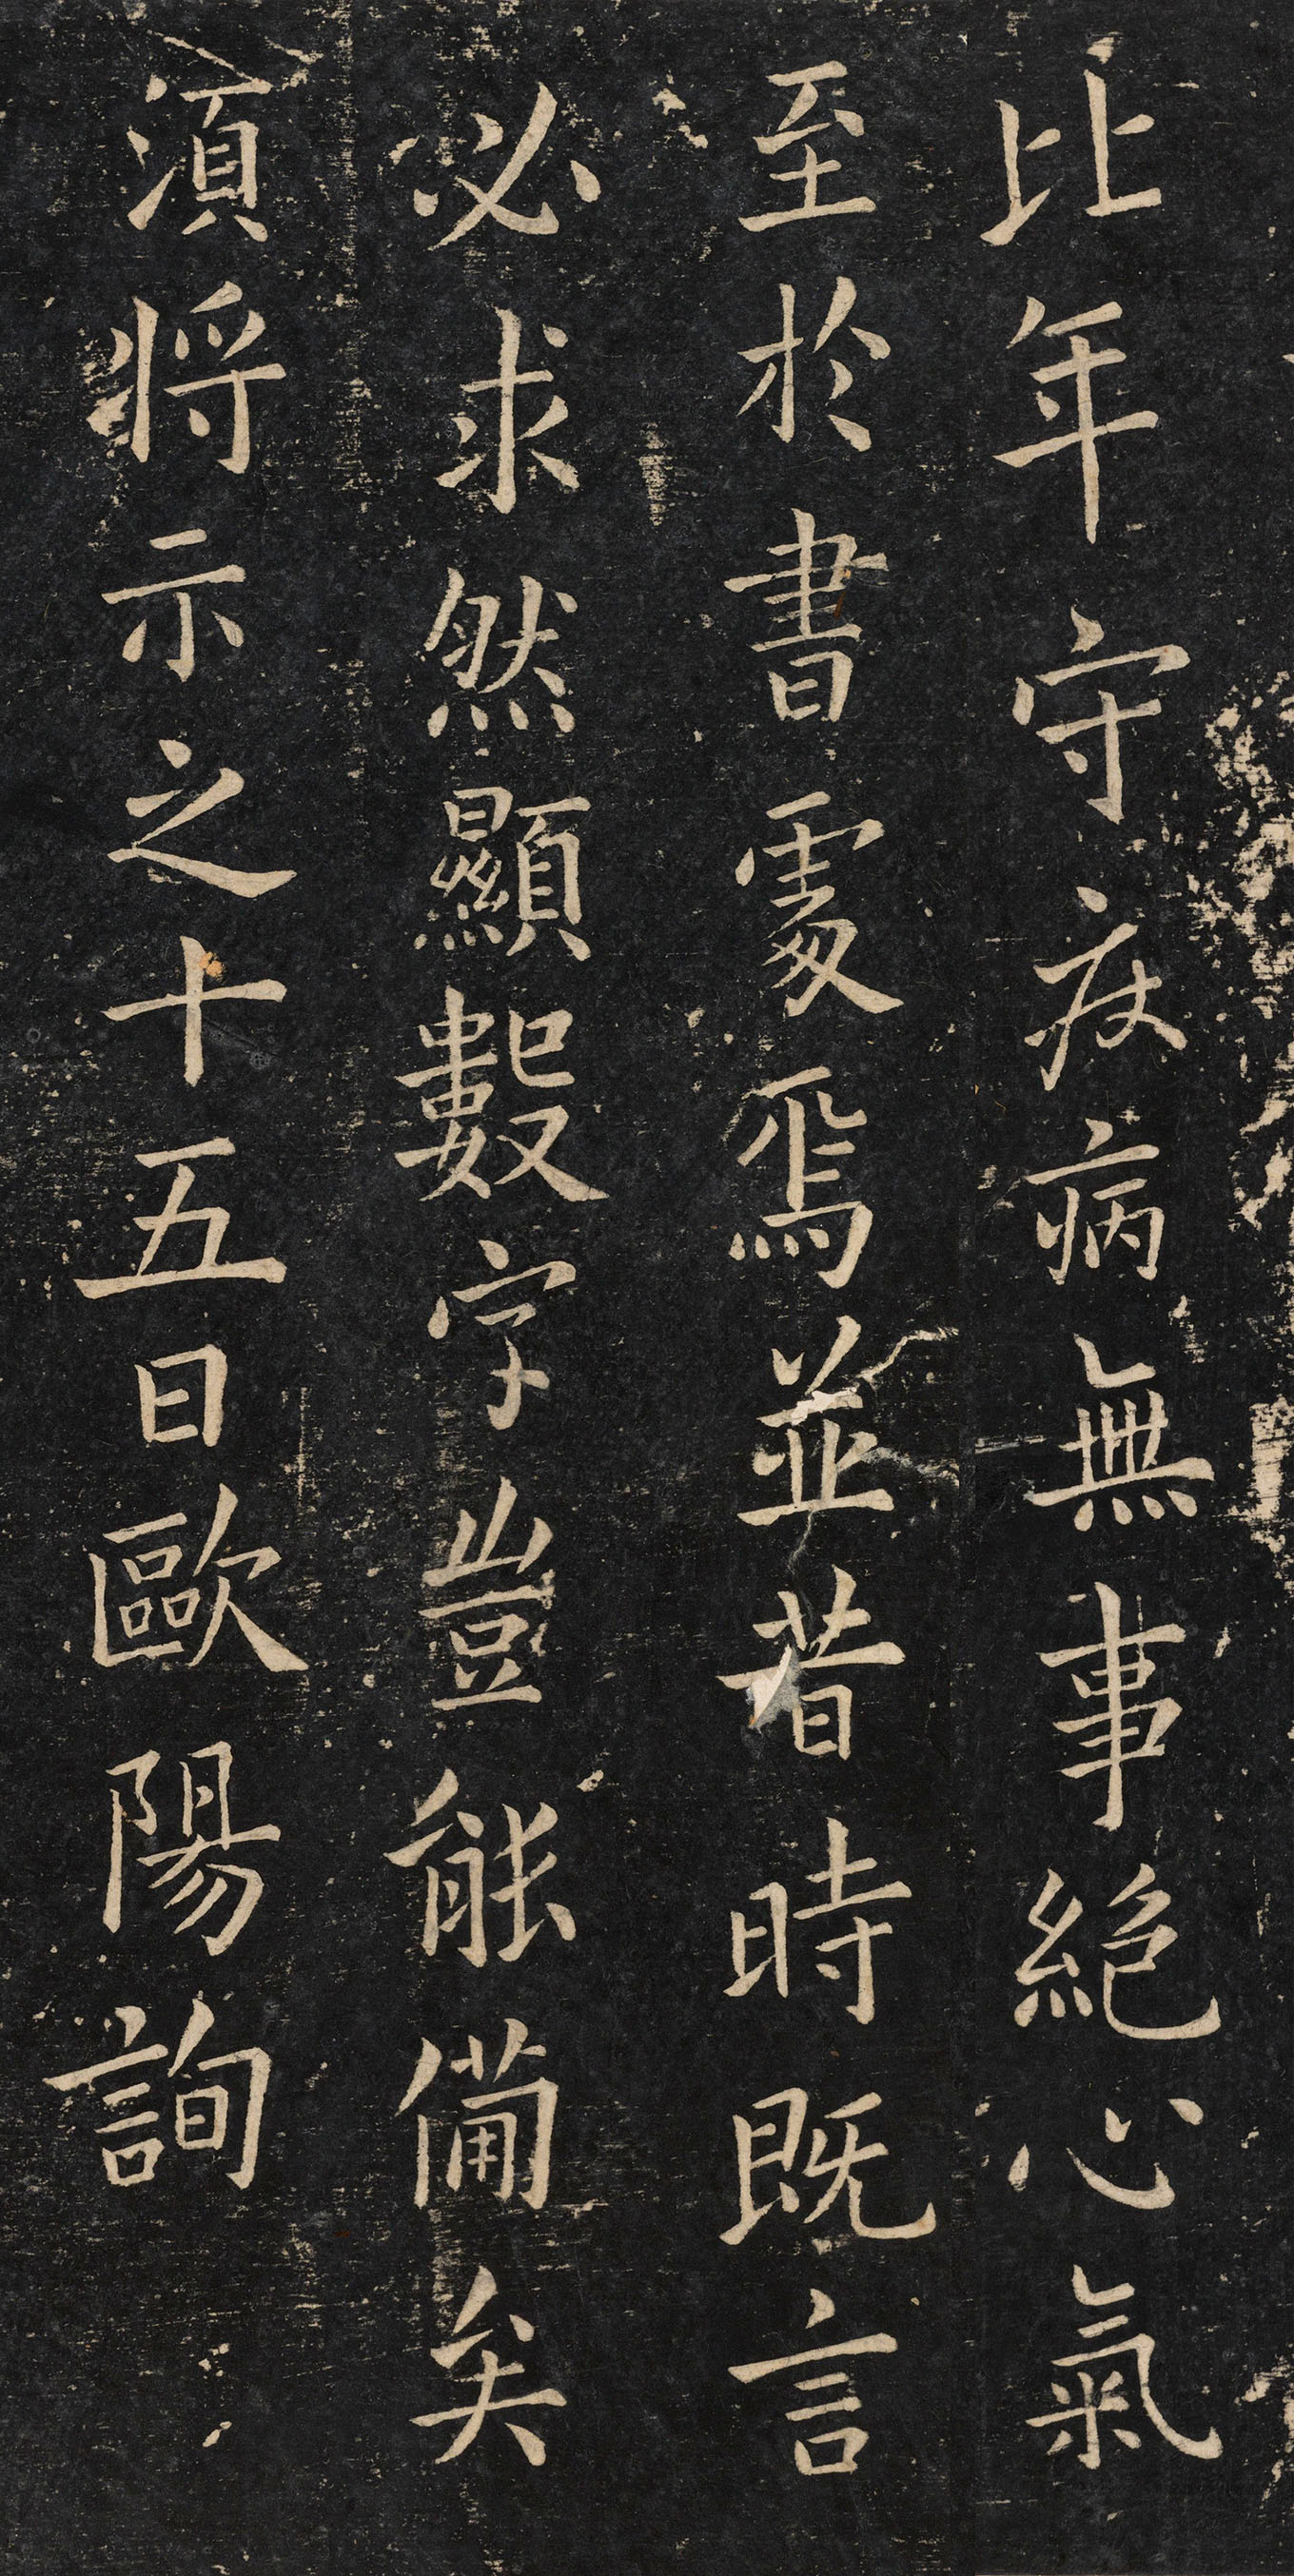 比年守疾病無事絕心氣
至於書處焉並昔時既言
必求然顯數字豈能備矣
須將示之十五日歐陽詢